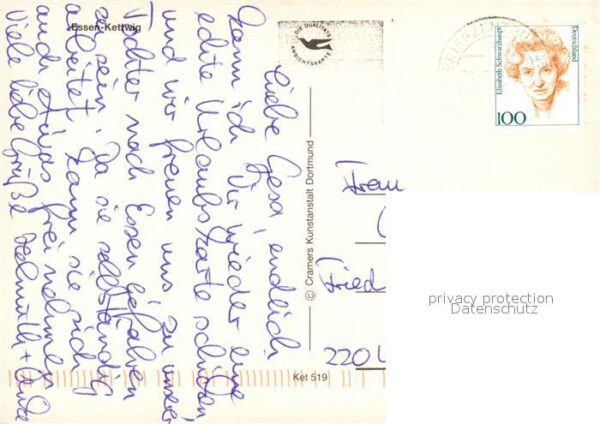 Essen-Kettwig
DIE QUALITÄTS
ANSICHTSKARTE
Liebe Gesa, endlich
kann ich Dir wieder eine
echte Urlaubskarte schicken
und wir freuen uns zu unserer
Tochter nach Essen gefahren
zu sein. Da sie selbständig
arbeitet, kann sie sich
auch etwas frei nehmen.
Viele liebe Grüße Helmuth +
© Cramers Kunstanstalt Dortmund
Ket 519
Frau
Fried
220
Deutschland
Elisabeth Schwarzhaupt
100
privacy protection
Datenschutz